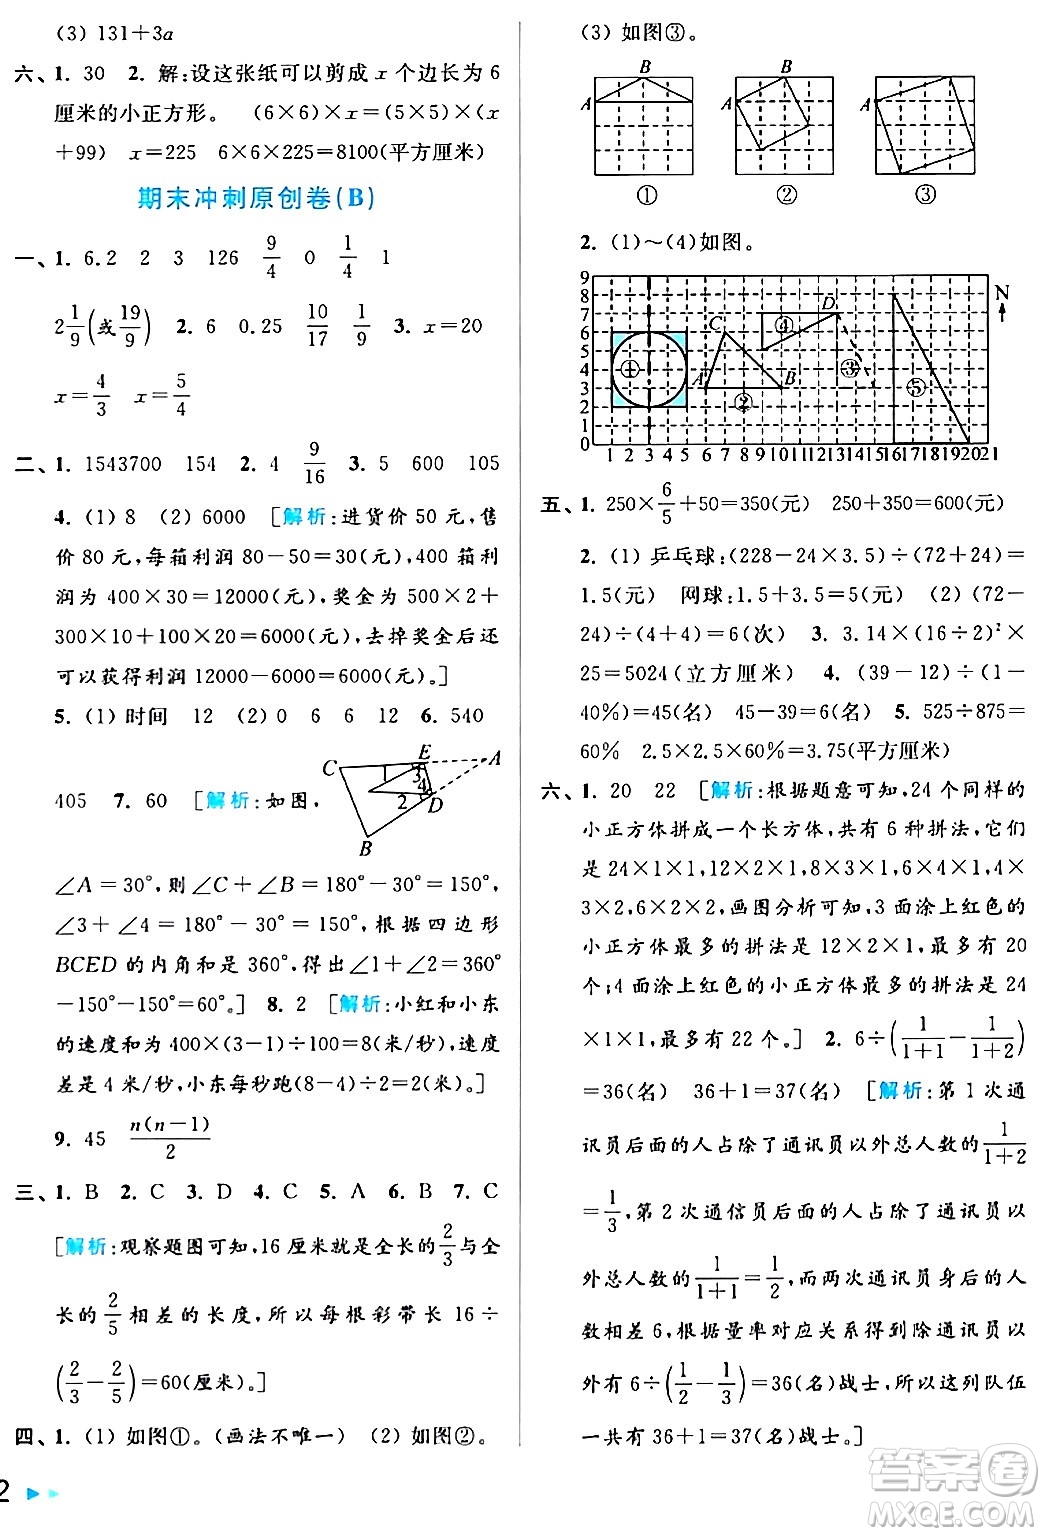 (3) 131＋3a
六、1. 30　2. 解:设这张纸可以剪成 x 个边长为 6
厘米的小正方形。　(6×6)×x＝(5×5)×(x
＋99)　x＝225　6×6×225＝8100(平方厘米)
期末冲刺原创卷(B)
一、1. 6.2　2　3　126　9/4　0　1/4　1
2 1/9(或 19/9)　2. 6　0.25　10/17　1/9　3. x＝20
x＝4/3　x＝5/4
二、1. 1543700　154　2. 4　9/16　3. 5　600　105
4. (1) 8　(2) 6000　[解析:进货价 50 元,售
价 80 元,每箱利润 80－50＝30(元),400 箱利
润为 400×30＝12000(元),奖金为 500×2＋
300×10＋100×20＝6000(元),去掉奖金后还
可以获得利润 12000－6000＝6000(元)。]
5. (1) 时间　12　(2) 0　6　6　12　6. 540
405　7. 60　[解析:如图,
C E A 1 3 4 2 D B
∠A＝30°,则∠C＋∠B＝180°－30°＝150°,
∠3＋∠4＝180°－30°＝150°,根据四边形
BCED 的内角和是 360°,得出∠1＋∠2＝360°
－150°－150°＝60°。]　8. 2　[解析:小红和小东
的速度和为 400×(3－1)÷100＝8(米/秒),速度
差是 4 米/秒,小东每秒跑(8－4)÷2＝2(米)。]
9. 45　n(n－1)/2
三、1. B　2. C　3. D　4. C　5. A　6. B　7. C
[解析:观察题图可知,16 厘米就是全长的 2/3 与全
长的 2/5 相差的长度,所以每根彩带长 16÷
(2/3－2/5)＝60(厘米)。]
四、1. (1) 如图①。(画法不唯一)　(2) 如图②。
2
(3) 如图③。
A B
A B
A
①　②　③
2. (1)～(4)如图。
9
8
7
6
5
4
3
2
1
0
① C A B ② ④ D ③ ⑤ N
1 2 3 4 5 6 7 8 9 101112131415161718192021
五、1. 250×6/5＋50＝350(元)　250＋350＝600(元)
2. (1) 乒乓球:(228－24×3.5)÷(72＋24)＝
1.5(元)　网球:1.5＋3.5＝5(元)　(2) (72－
24)÷(4＋4)＝6(次)　3. 3.14×(16÷2)²×
25＝5024(立方厘米)　4. (39－12)÷(1－
40%)＝45(名)　45－39＝6(名)　5. 525÷875＝
60%　2.5×2.5×60%＝3.75(平方厘米)
六、1. 20　22　[解析:根据题意可知,24 个同样的
小正方体拼成一个长方体,共有 6 种拼法,它们
是 24×1×1,12×2×1,8×3×1,6×4×1,4×
3×2,6×2×2,画图分析可知,3 面涂上红色的
小正方体最多的拼法是 12×2×1,最多有 20
个;4 面涂上红色的小正方体最多的拼法是 24
×1×1,最多有 22 个。]　2. 6÷(1/(1＋1)－1/(1＋2))
＝36(名)　36＋1＝37(名)　[解析:第 1 次通
讯员后面的人占除了通讯员以外总人数的 1/(1＋2)
＝1/3,第 2 次通信员后面的人占除了通讯员以
外总人数的 1/(1＋1)＝1/2,而两次通讯员身后的人
数相差 6,根据量率对应关系得到除通讯员以
外有 6÷(1/2－1/3)＝36(名)战士,所以这列队伍
一共有 36＋1＝37(名)战士。]
答案卷
MXQE.COM